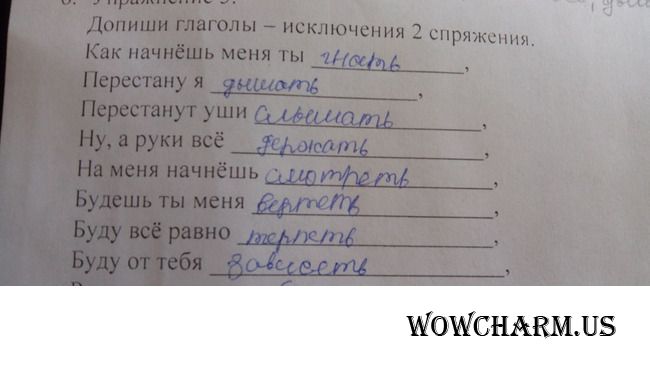 6. Упражнение 3.
Допиши глаголы – исключения 2 спряжения.
Как начнёшь меня ты гнать,
Перестану я дышать,
Перестанут уши слышать,
Ну, а руки всё держать,
На меня начнёшь смотреть,
Будешь ты меня вертеть,
Буду всё равно терпеть,
Буду от тебя зависеть,
WOWCHARM.US